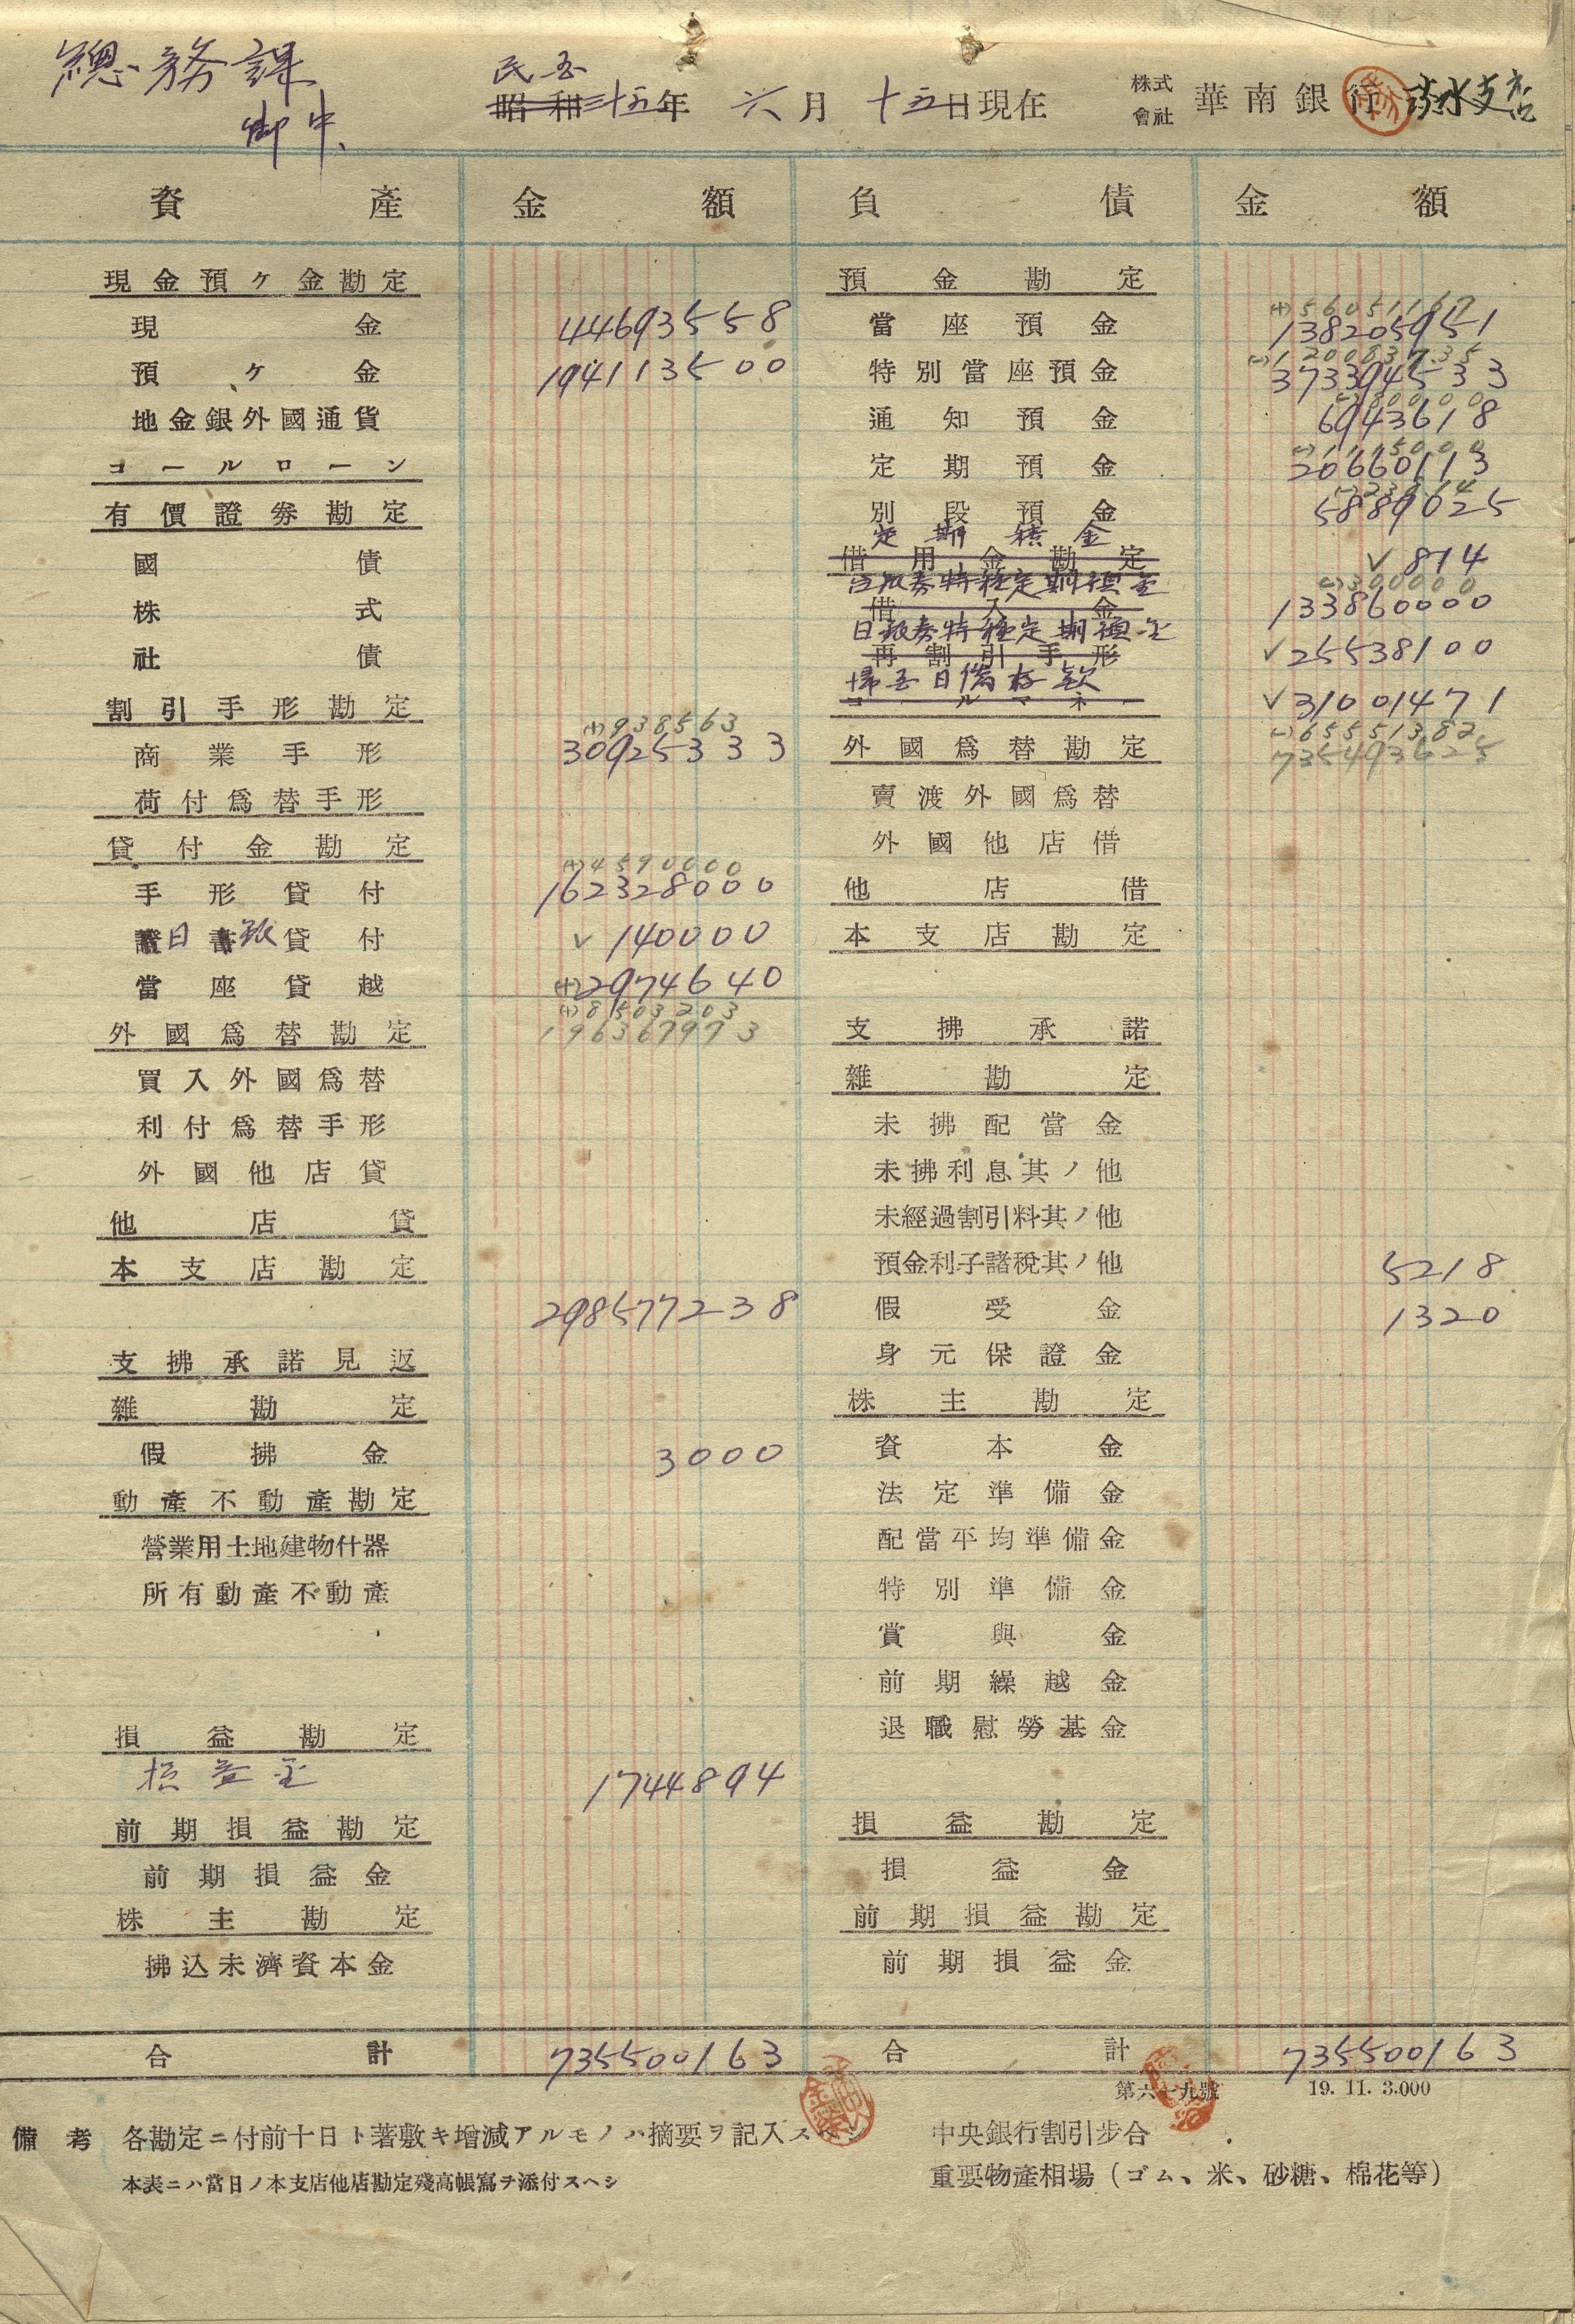 總務課
御中、
民五
昭和三十五年 六月 十五日現在 株式會社 華南銀行 淡水支店
資產 金額 負債 金額
現金預ヶ金勘定 預金勘定
(+)56051167
現金 44693558 當座預金 138205951
(-)120083735
預ヶ金 1941113500 特別當座預金 373394533
(-)380000
地金銀外國通貨 通知預金 6943618
(-)1115000
コールローン 定期預金 20660113
有價證劵勘定 別段預金 5889625
定期積金
國債 借用金勘定 ✓ 814
台銀券特種定期預金 (-)300000
株式 借入金 133860000
日銀券特種定期預金
社債 再割引手形 ✓25538100
歸五日備存欵
割引手形勘定 コールマネー ✓31001471
(+)938563 (-)65551382
商業手形 30925333 外國爲替勘定 735493625
荷付爲替手形 賣渡外國爲替
貸付金勘定 外國他店借
(+)4590000
手形貸付 162328000 他店借
證日書銀貸付 ✓ 140000 本支店勘定
當座貸越 (+)2974640
(+)8503203
外國爲替勘定 196367973 支拂承諾
買入外國爲替 雜勘定
利付爲替手形 未拂配當金
外國他店貸 未拂利息其ノ他
他店貸 未經過割引料其ノ他
本支店勘定 預金利子諸稅其ノ他 5218
298577238 假受金 1320
支拂承諾見返 身元保證金
雜勘定 株主勘定
假拂金 3000 資本金
動產不動產勘定 法定準備金
營業用土地建物什器 配當平均準備金
所有動產不動產 特別準備金
賞與金
前期繰越金
損益勘定 退職慰勞基金
損益金 1744894
前期損益勘定 損益勘定
前期損益金 損益金
株主勘定 前期損益勘定
拂込未濟資本金 前期損益金
合計 735500163 合計 735500163
第六十九號 19. 11. 3.000
備考 各勘定ニ付前十日ト著敷キ增減アルモノハ摘要ヲ記入スヘシ 中央銀行割引步合
本表ニハ當日ノ本支店他店勘定殘高帳寫チ添付スヘシ 重要物產相場（ゴム、米、砂糖、棉花等）